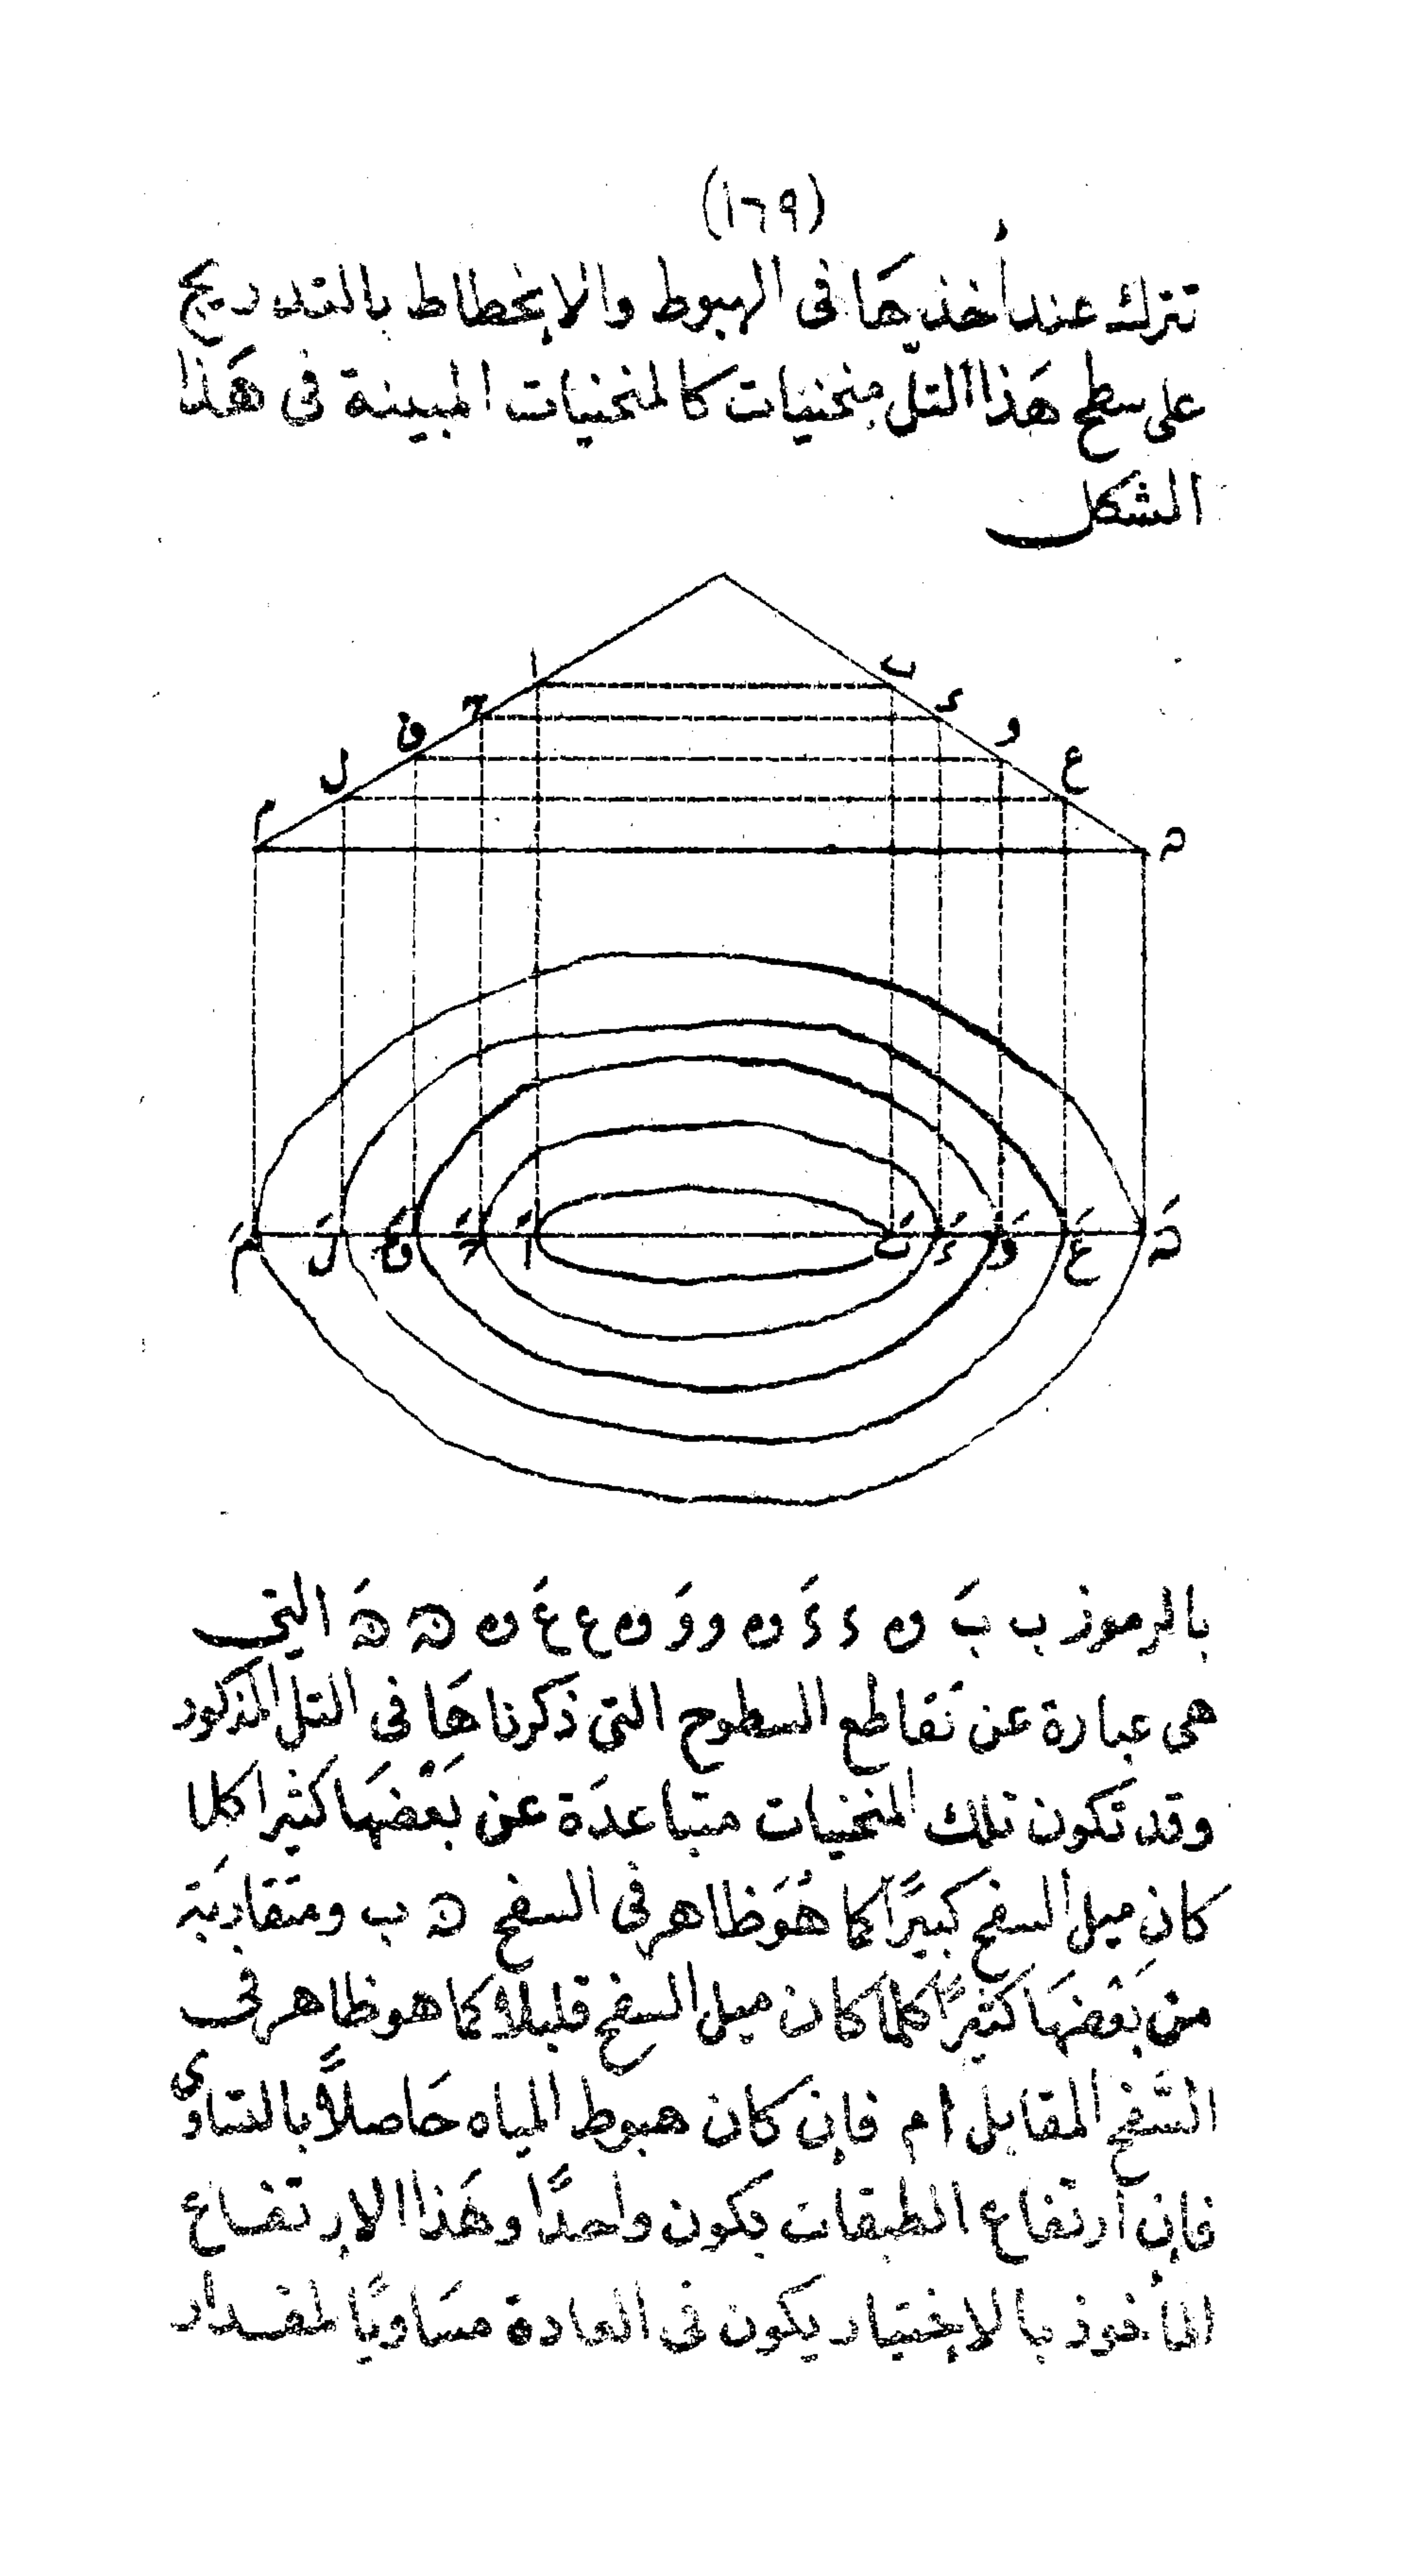 (١٦٩)
تترك عند أخذيها فى الهبوط والإنخطاط بالتدريج
على سطح هَذا التلّ منحنيات كالمنحنيات المبينة فى هَذا
الشكل
ا ب
ج د
ق و
ل ع
م ه
مَ لَ قَ جَ اَ بَ دَ وَ عَ هَ
بالرموز ب بَ و د دَ و و وَ و ع عَ و ه هَ التي
هى عبارة عن تَقاطع السطوح التى ذكرناهَا فى التل المذكور
وقد تَكون تلك المنحنيات متباعدَة عن بَعْضهَا كثيرا كلا
كان ميل السفح كبيرًا كما هُوَ ظاهر فى السفح ه ب ومتقاربَة
من بَعْضهَا كثيرًا كلما كان ميل السفح قليلا كما هو ظاهر فى
السَّفح المقابل ام فإن كان هبوط المياه حَاصلاً بالتساوى
فإن ارتفاع الطبقات يكون واحدًا وهَذا الارتفاع
المأخوذ بالإختيار يكون فى العادة مسَاويًا لمقدار